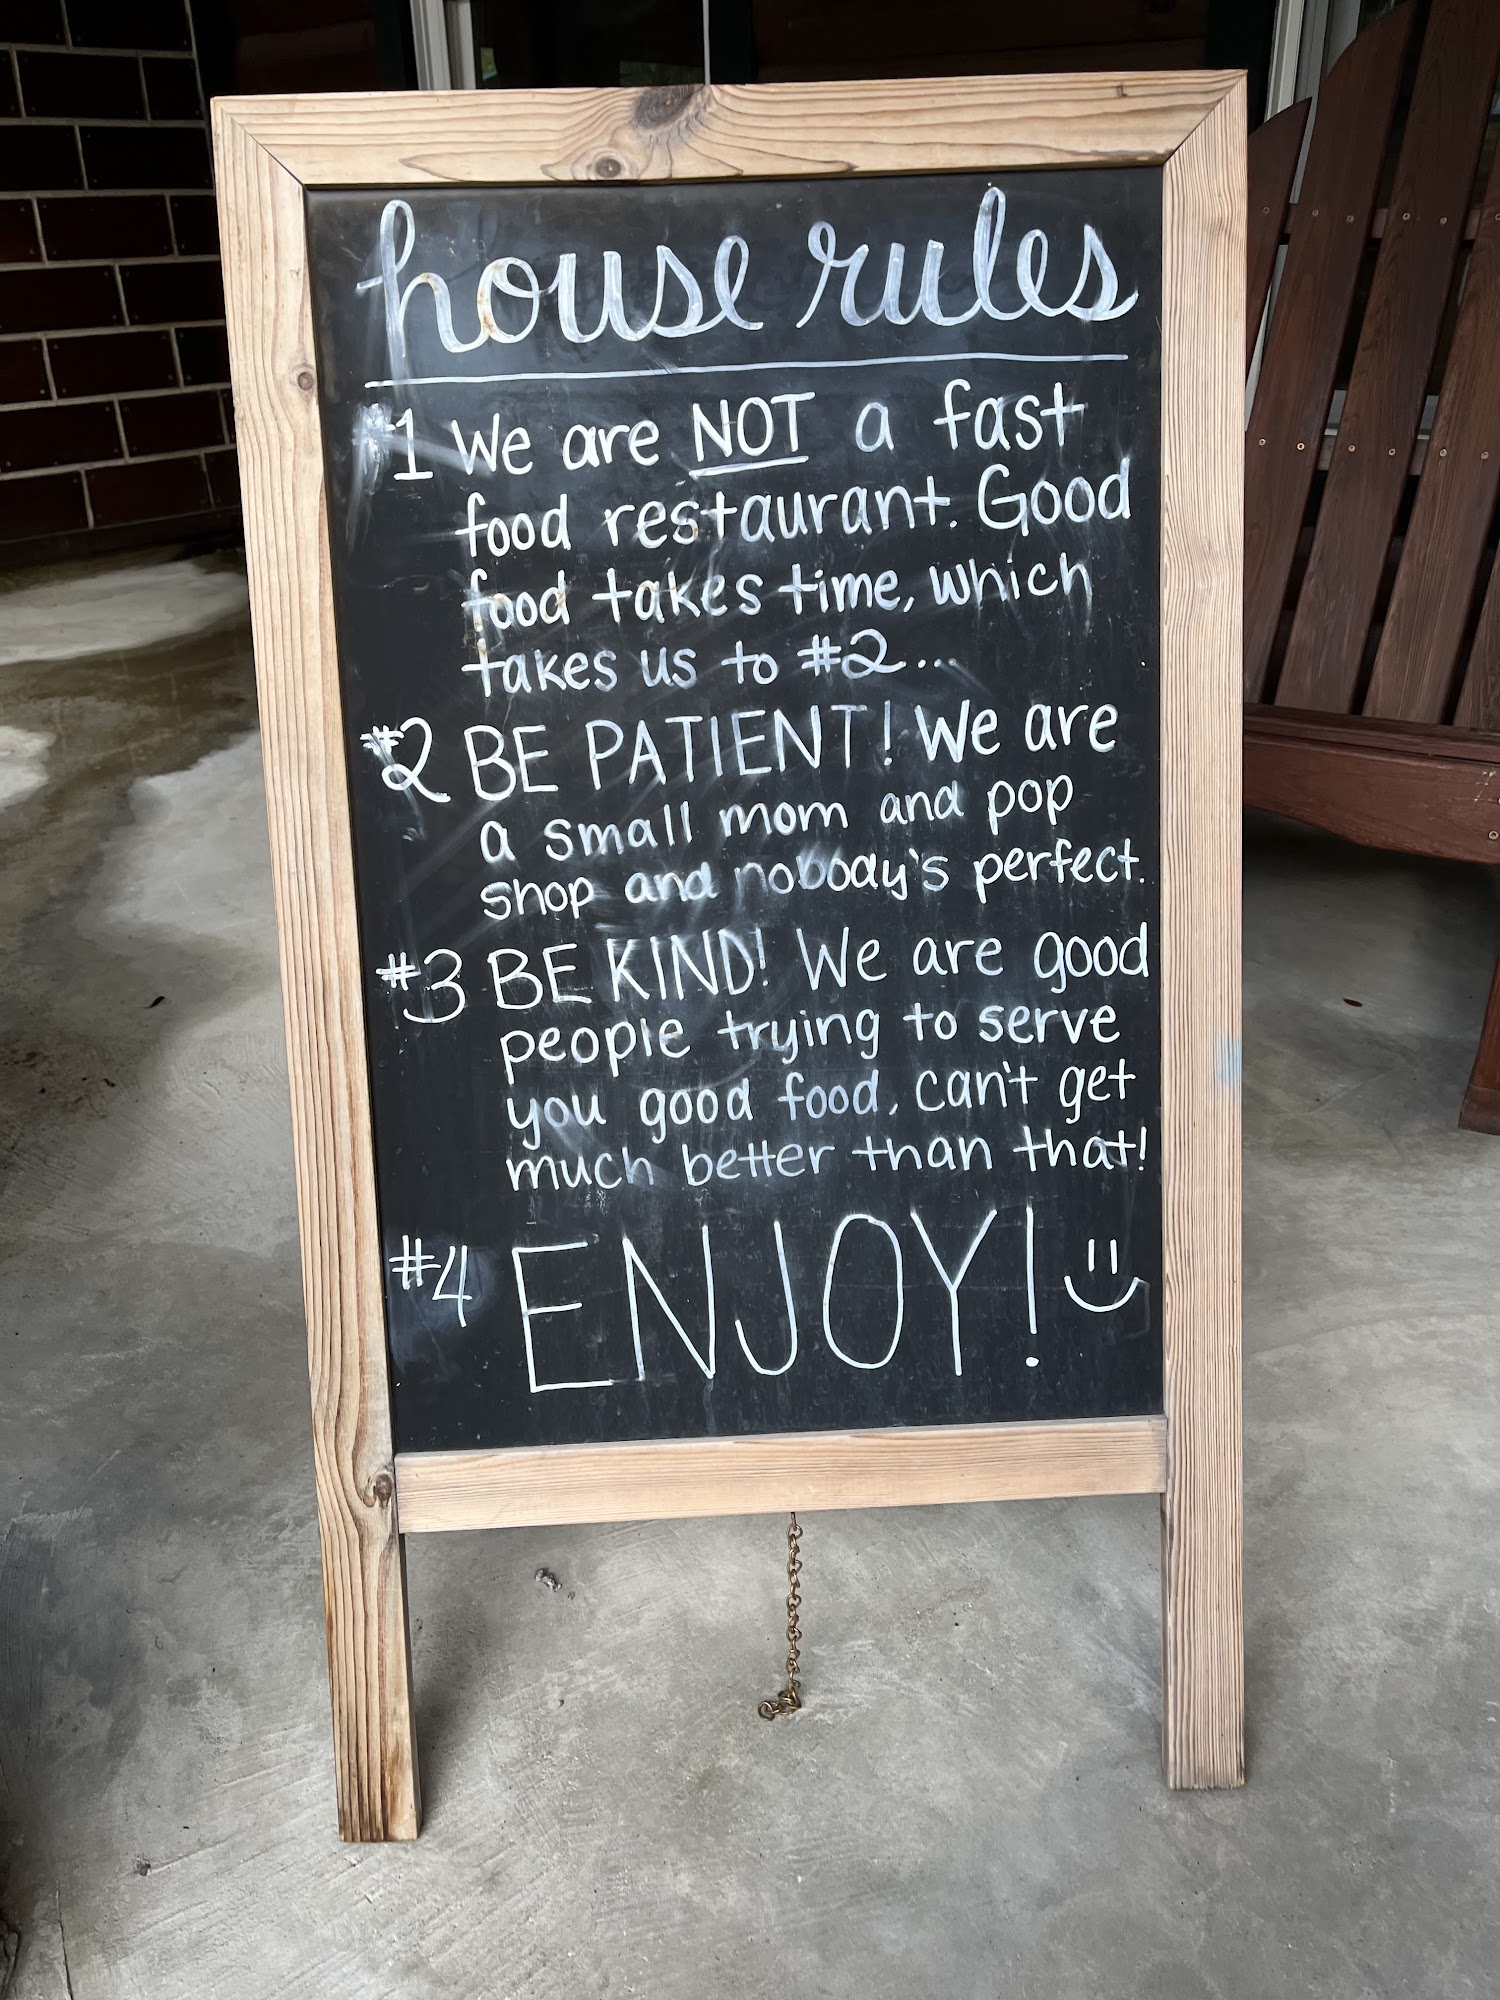 house rules
#1 We are NOT a fast
food restaurant. Good
food takes time, which
takes us to #2...
#2 BE PATIENT! We are
a small mom and pop
shop and nobody's perfect.
#3 BE KIND! We are good
people trying to serve
you good food, can't get
much better than that!
#4 ENJOY!